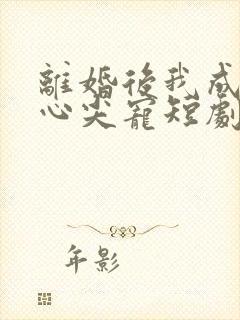 離婚後我成
心尖寵短劇
年影